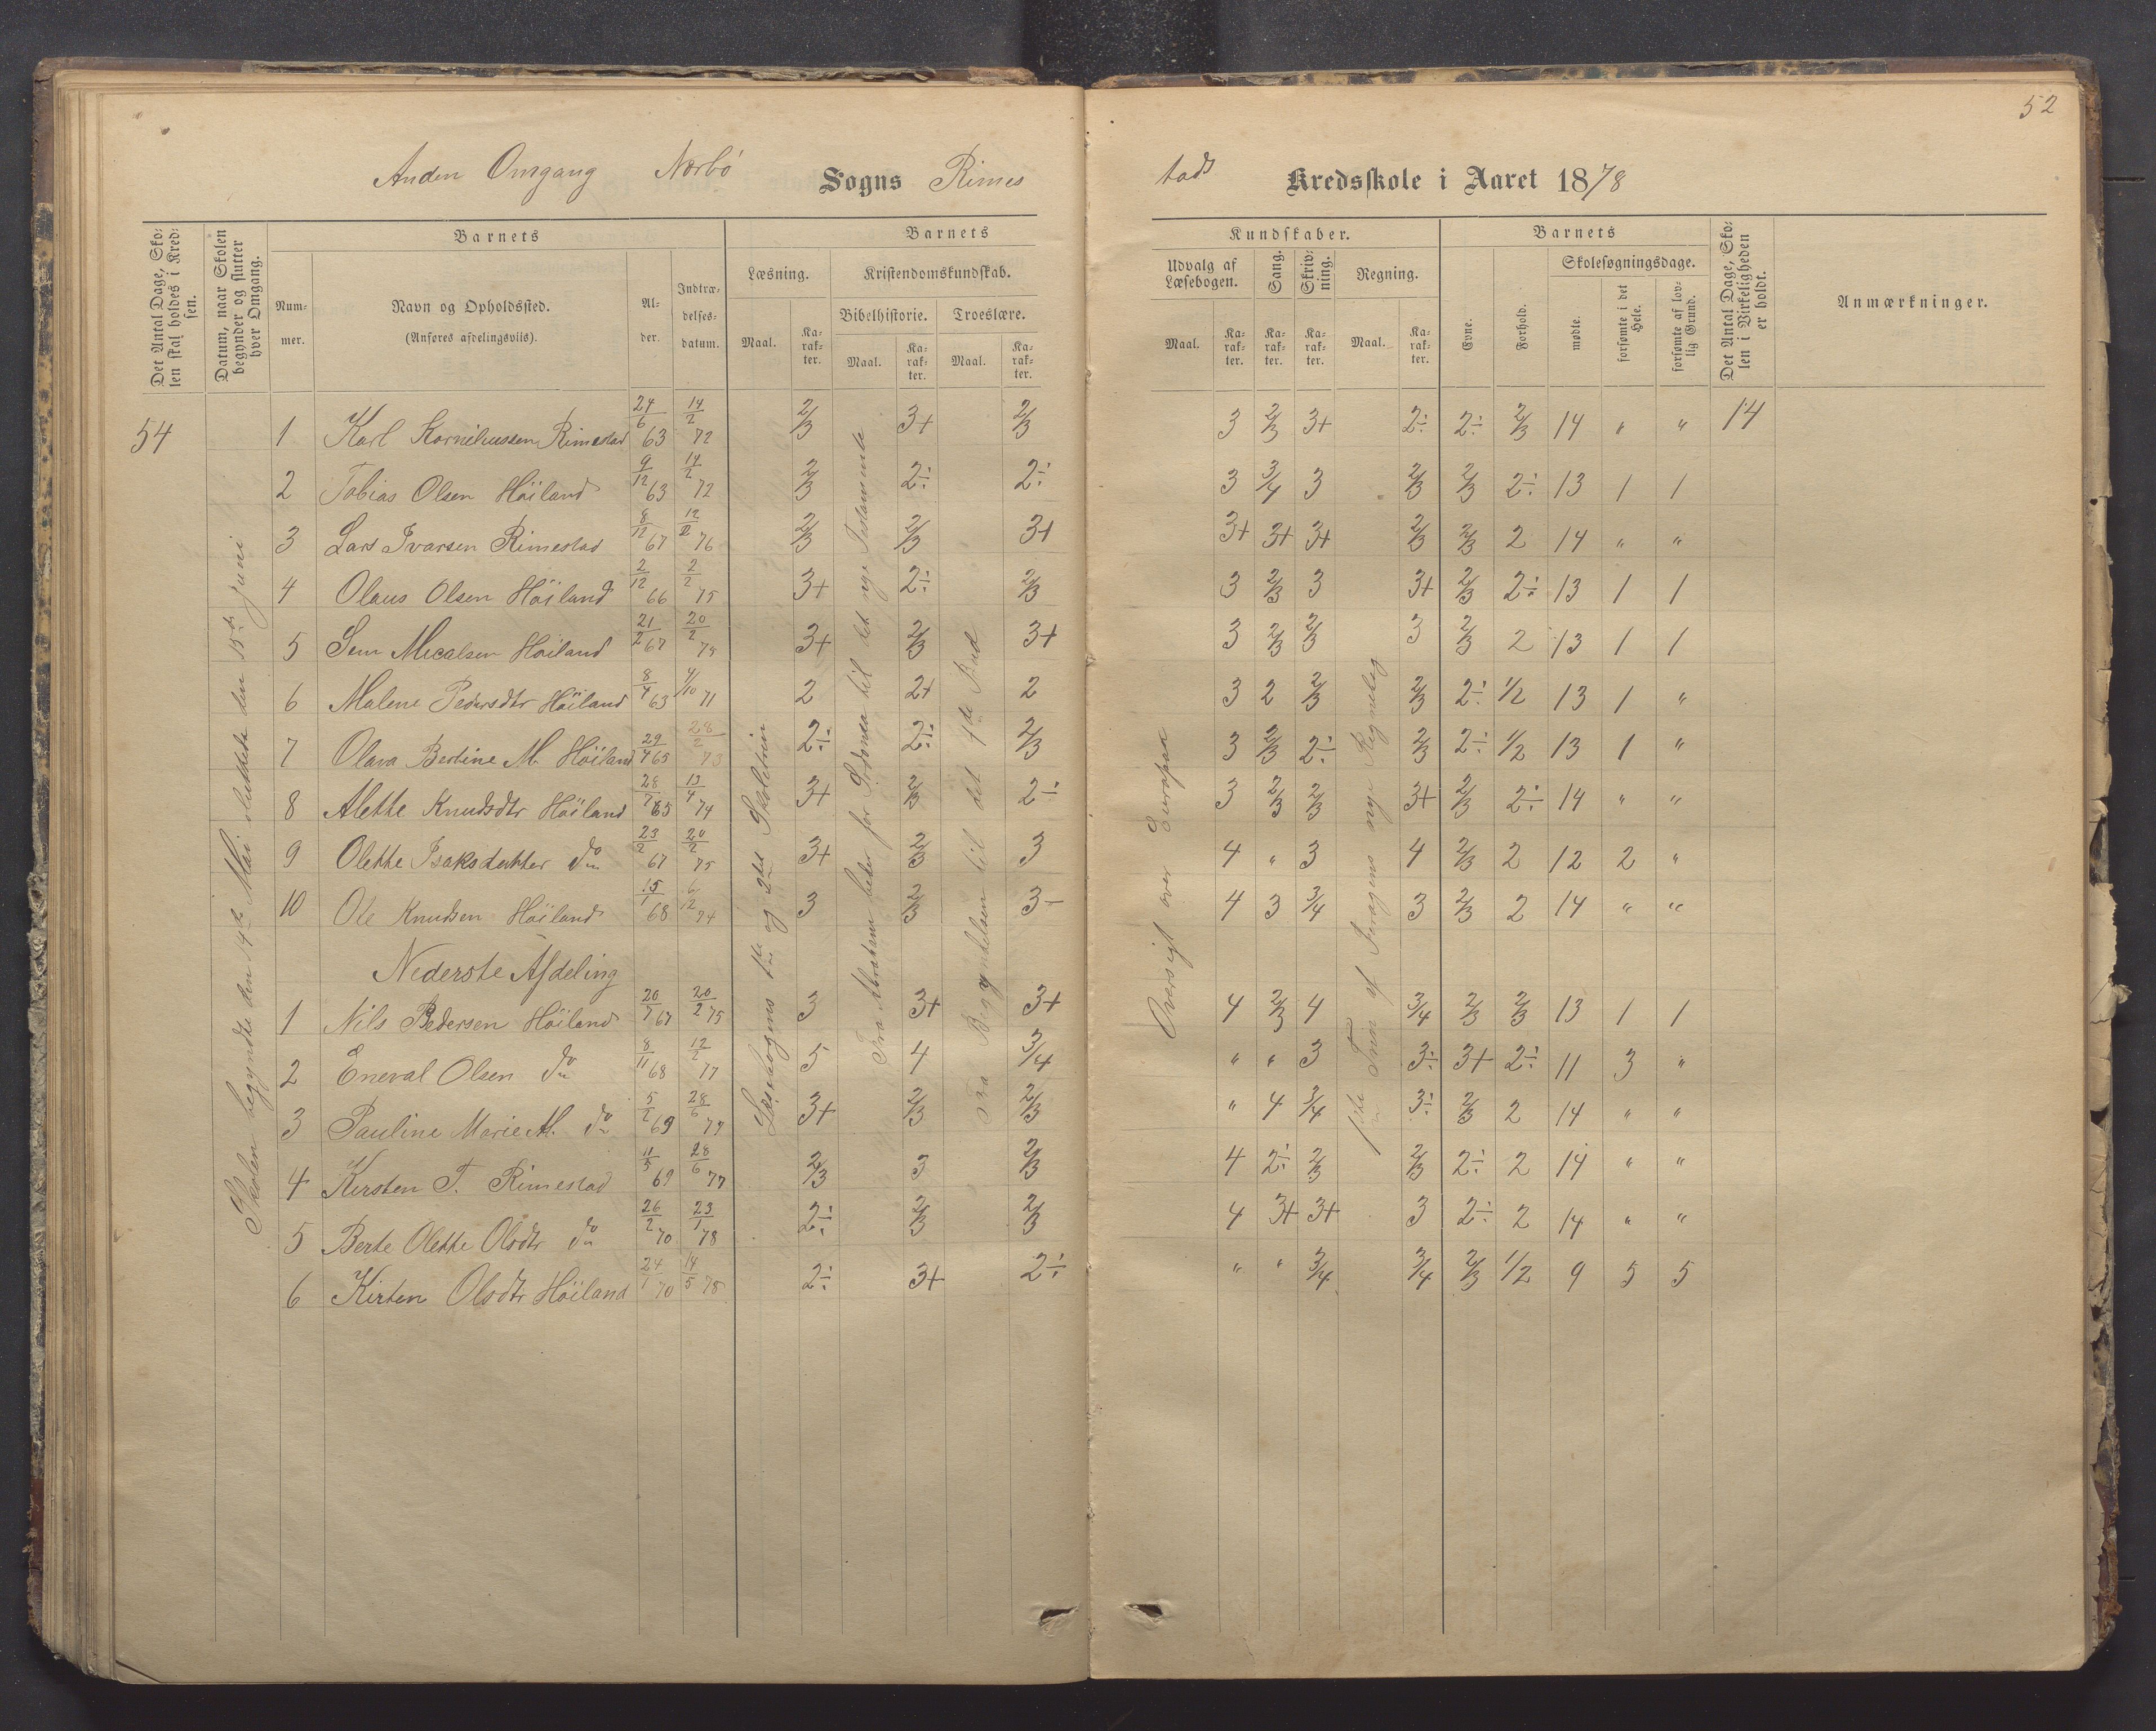 52
Anden Omgang Nærbö Sogns Rimes
tads Kredsskole i Aaret 1878
Det Antal Dage, Skolen skal holdes i Kredsen.
Datum, naar Skolen begynder og slutter hver Omgang.
Barnets
Nummer.
Navn og Opholdssted.
(Anføres afdelingsviis).
Alder.
Indtrædelsesdatum.
Barnets
Læsning.
Kristendomskundskab.
Bibelhistorie.
Troeslære.
Maal.
Karakter.
Maal.
Karakter.
Maal.
Karakter.
Kundskaber.
Udvalg af Læsebogen.
Sang.
Skrivning.
Regning.
Maal.
Karakter.
Karakter.
Karakter.
Maal.
Karakter.
Barnets
Evne.
Forhold.
Skolesøgningsdage.
mødte.
forsømte i det Hele.
forsømte af lovlig Grund.
Det Antal Dage, Skolen i Virkeligheden er holdt.
Anmærkninger.
54 1 Karl Kornihussen Rimestad 24/6 63 14/2 72 2/3 3+ 2/3 3 2/3 3+ 2÷ 2÷ 2/3 14 " " 14
2 Tobias Olsen Höiland 9/12 63 14/2 72 2/3 2÷ 2÷ 3 3/4 3 2/3 2/3 2÷ 13 1 1
3 Lars Ivarsen Rimestad 8/12 67 12/2 76 2/3 2/3 3+ 3+ 3+ 3+ 2/3 2/3 2 14 " "
4 Olaus Olsen Höiland 2/12 66 2/2 75 3+ 2÷ 2/3 3 2/3 3 3+ 2/3 2÷ 13 1 1
5 Sem Micalsen Höiland 21/2 67 20/2 75 3+ 2/3 3+ 3 2/3 2/3 3 2/3 2 13 1 1
6 Malene Pedersdtr Höiland 8/4 63 4/10 71 2 2+ 2 3 2 2/3 2/3 2÷ 1/2 13 1 "
7 Olava Bertine M. Höiland 29/4 65 28/2 73 2÷ 2÷ 2/3 3 2/3 2÷ 2/3 2÷ 1/2 13 1 "
8 Alette Knudsdtr Höiland 28/7 65 13/4 74 3+ 2/3 2÷ 3 2/3 2/3 3+ 2/3 2÷ 14 " "
9 Olette Isaksdatter do 23/2 67 20/2 75 3+ 2/3 3 4 " 3 4 2/3 2 12 2 "
10 Ole Knudsen Höiland 15/1 68 6/12 74 3 2/3 3- 4 3 3/4 3 2/3 2 14 " "
Nederste Afdeling
1 Nils Pedersen Höiland 20/7 67 20/2 75 3 3+ 3+ 4 2/3 4 3/4 2/3 2/3 13 1 1
2 Eneval Olsen do 8/11 68 12/2 77 5 4 3/4 " " 3 3÷ 3+ 2÷ 11 3 "
3 Pauline Marie M. do 5/2 69 28/6 77 3+ 2/3 2/3 " 4 3/4 3÷ 2/3 2 14 " "
4 Kersten T. Rimestad 11/5 69 28/6 77 2/3 3 2/3 4 2÷ 2/3 2/3 2÷ 2 14 " "
5 Berte Olette Olsdtr do 26/2 70 23/1 78 2÷ 2/3 2/3 4 3+ 3+ 3 2÷ 2 14 " "
6 Kirten Olsdtr Höiland 24/1 70 14/5 78 2÷ 3+ 2÷ " " 3/4 3/4 2/3 1/2 9 5 5
Skolen begyndte den 14de Mai sluttede den 15de Juni
Læsebogens 1ste og 2det Skoletrin
Fra Abraham beder for Sodoma til det nye Testamente
Fra Begyndelsen til det 4de Bud
Oversigt over Europa
1ste Trin af nye Regnebog